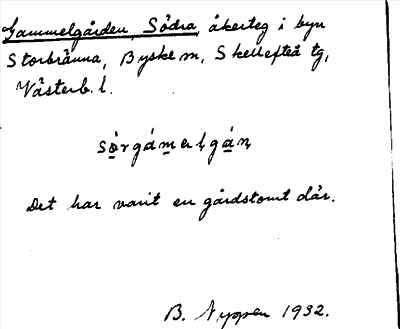 Gammelgården, Södra, åkerteg i byn
Storbränna, Byske sn, Skellefteå tg,
Västerb. l.
Det har varit en gårdstomt där.
B. Nyppen 1932.